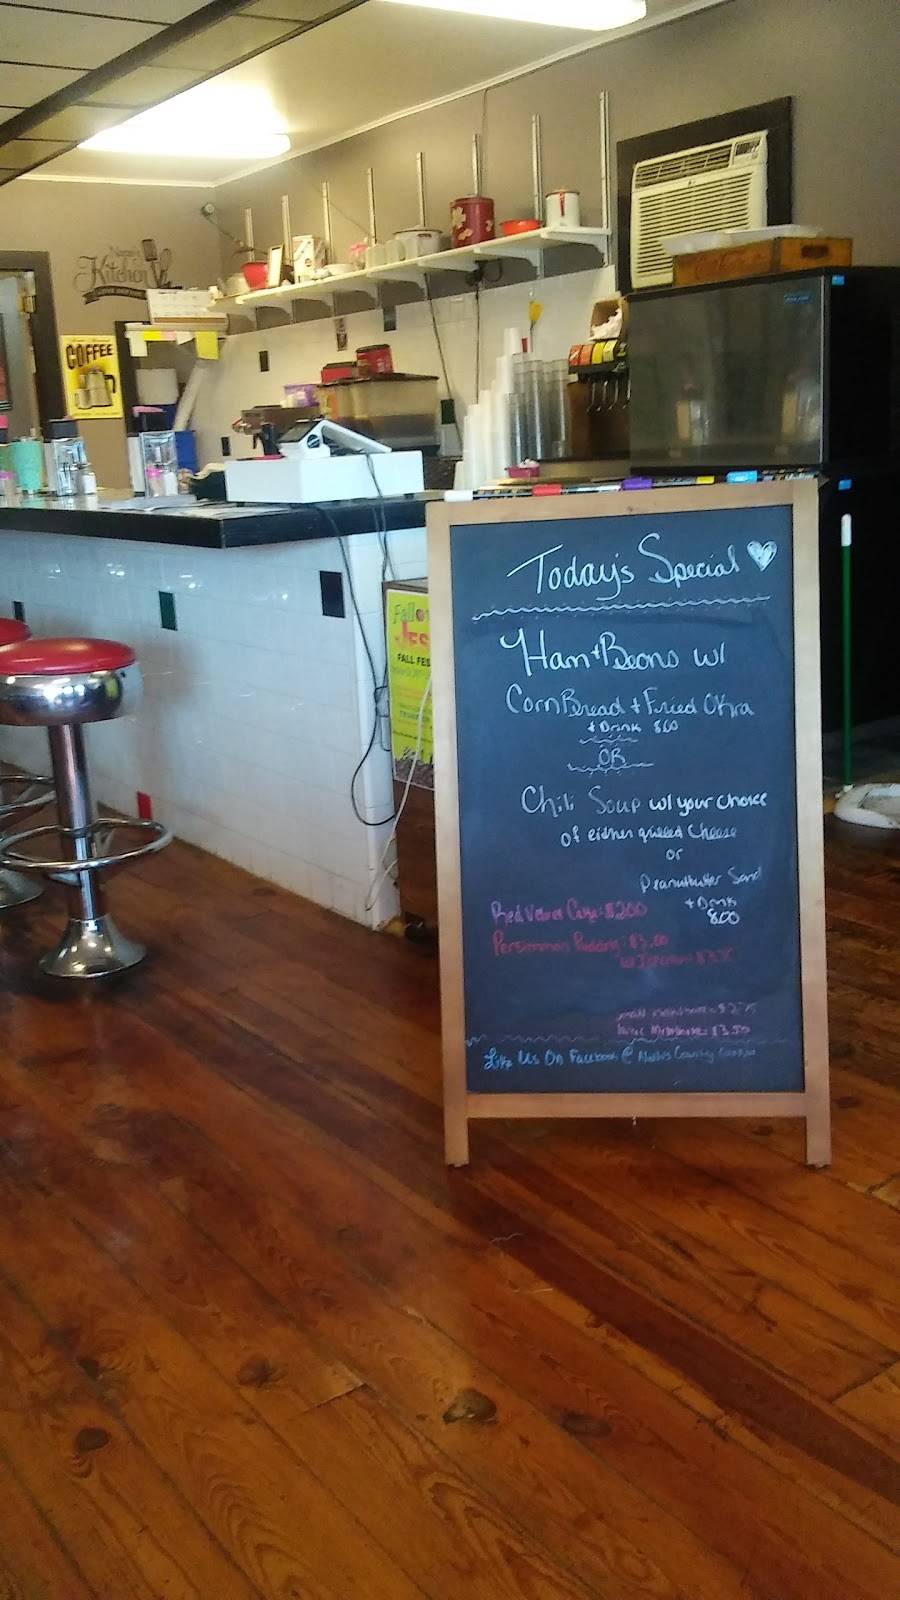 Kitchen
COFFEE
FALL FES
Today's Special
Ham + Beans w/
Corn Bread + Fried Okra
+ Drink 8.00
OR
Chili Soup w/ your choice
of either grilled cheese
or
Peanutbutter Sand
+ Drink
8.00
Red Velvet Cake: $2.00
Persimmon Pudding: $3.00
Small Milkshake: $2.75
Large Milkshake: $3.50
Like Us On Facebook @ Country